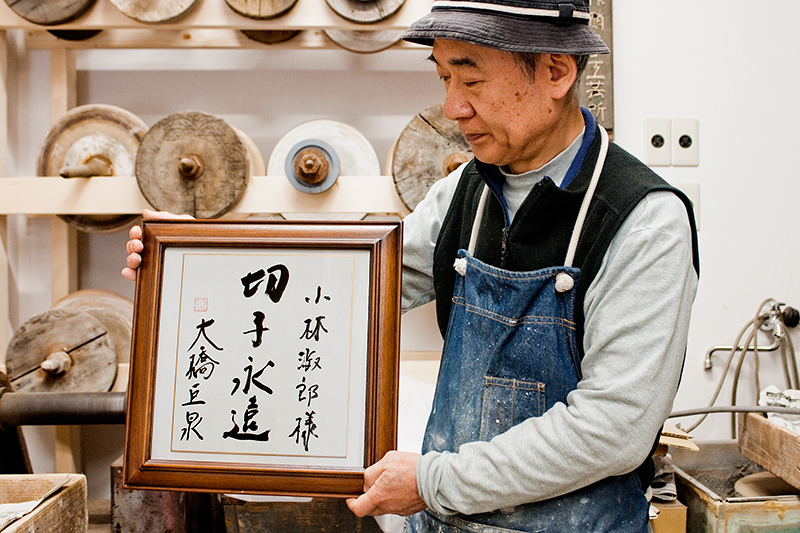 小林淑郎様
切子永遠
大橋巨泉